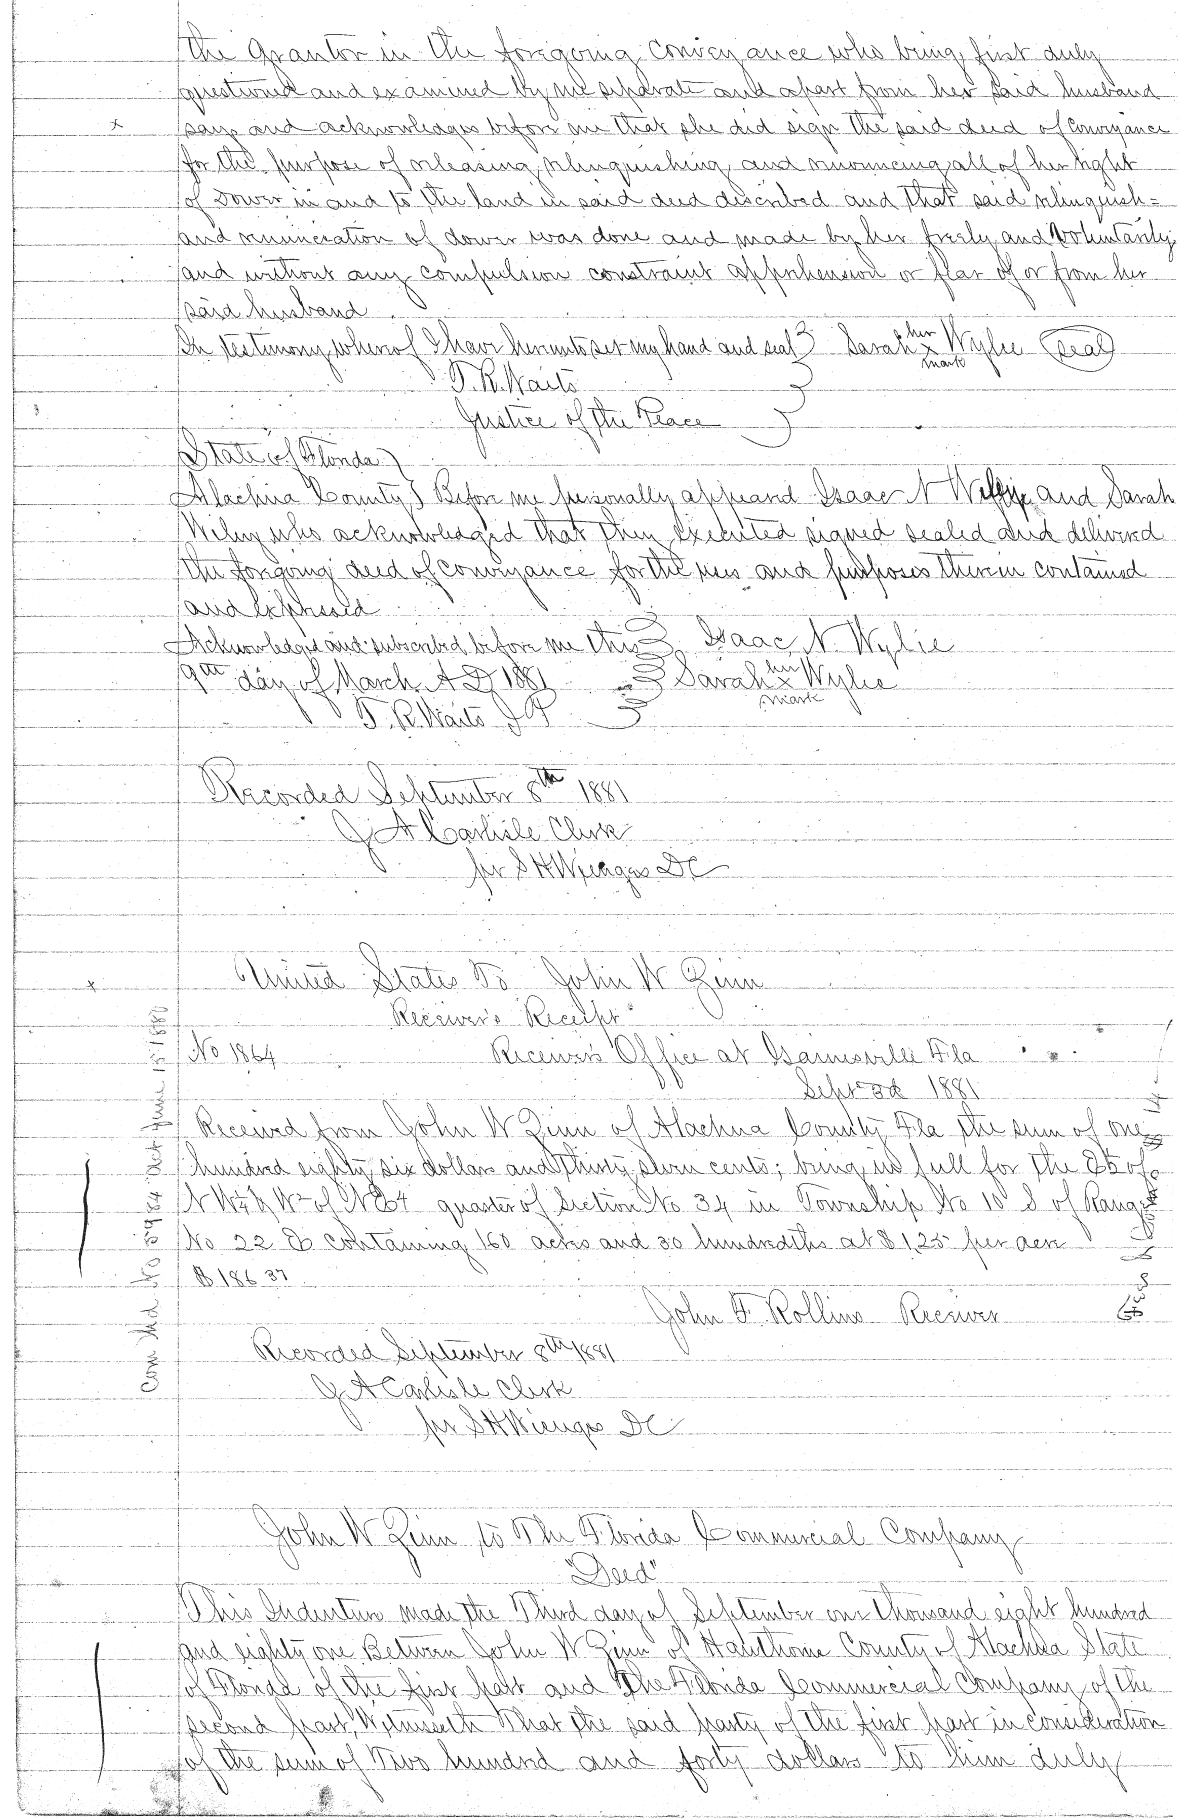 the Grantor in the foregoing conveyance who being first duly
questioned and examined by me separate and apart from her said husband
says and acknowledges before me that she did sign the said deed of conveyance
for the purpose of releasing, relinquishing and renouncing all of her right
of Dower in and to the land in said deed described and that said relinquish=
and renunciation of dower was done and made by her freely and voluntarily
and without any compulsion constraint apprehension or fear of or from her
said husband
In testimony whereof I have hereunto set my hand and seal } Sarah her x mark Wylie (seal)
T. R. Waits
Justice of the Peace
State of Florida }
Alachua County } Before me personally appeared Isaac N Wylie and Sarah
Wiley who acknowledged that they executed signed sealed and delivered
the foregoing deed of conveyance for the uses and purposes therein contained
and expressed
Acknowledged and subscribed before me this } Isaac N. Wylie
9th day of March A D 1881 } Sarah her x mark Wylie
T. R. Waits J P
Recorded September 8th 1881
J A Carlisle Clerk
per S H Wienges DC
United States To John W Zinn
Receiver's Receipt
No 1864 Receivers Office at Gainesville Fla
Sept 3d 1881
Received from John W Zinn of Alachua County Fla the sum of one
hundred eighty six dollars and thirty seven cents; being in full for the
quarter of Section No 34 in Township No 10 S of Range
No 22 E containing 160 acres and 30 hundredths at $1,25 per acre
$186 37
John F. Rollins Receiver
Recorded September 8th 1881
J A Carlisle Clerk
per S H Wienges DC
John W Zinn to The Florida Commercial Company
"Deed"
This Indenture made the Third day of September one thousand eight hundred
and eighty one Between John W Zinn of Hawthorne County of Alachua State
of Florida of the first part and The Florida Commercial Company of the
second part, Witnesseth That the said party of the first part in consideration
of the sum of Two hundred and forty dollars to him duly